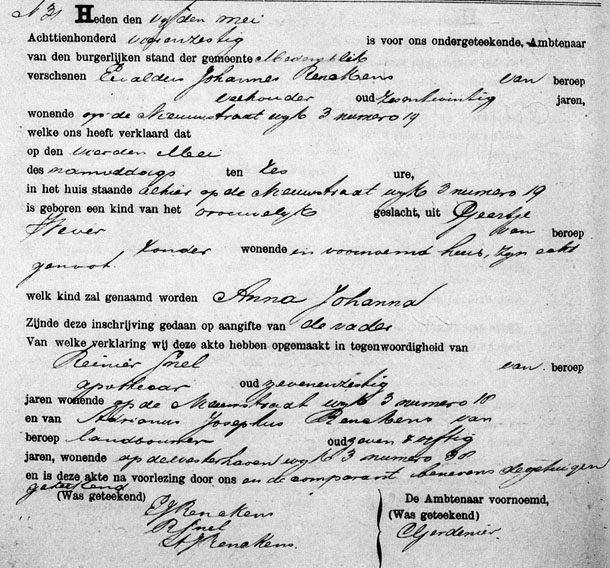 N 31 Heden den vijfden mei
Achttienhonderd vierenzestig is voor ons ondergeteekende, Ambtenaar
van den burgerlijken stand der gemeente Medemblik
verschenen Ewaldus Johannes Renckens van beroep
veehouder oud zesentwintig jaren,
wonende op de Nieuwstraat wyk 3 numero 19
welke ons heeft verklaard dat
op den vierden Mei
des namiddags ten zes ure,
in het huis staande alhier op de Nieuwstraat wyk 3 numero 19
is geboren een kind van het vrouwelyk geslacht, uit Geertje
Wever van beroep
zonder wonende in voornoemd huis, zyn echt
genoot.
welk kind zal genaamd worden Anna Johanna
Zijnde deze inschrijving gedaan op aangifte van de vader
Van welke verklaring wij deze akte hebben opgemaakt in tegenwoordigheid van
Reinier Snel van beroep
apothecar oud zevenenzestig
jaren wonende op de Nieuwstraat wyk 3 numero 18
en van Adrianus Josephus Renckens van
beroep landbouwer oud zeven & vyftig
jaren, wonende op de Oosterhaven wyk 3 numero 38
en is deze akte na voorlezing door ons en de comparant benevens de getuigen
geteekend
(Was geteekend) De Ambtenaar voornoemd,
EJ Renckens (Was geteekend)
R Snel
AJ Renckens.